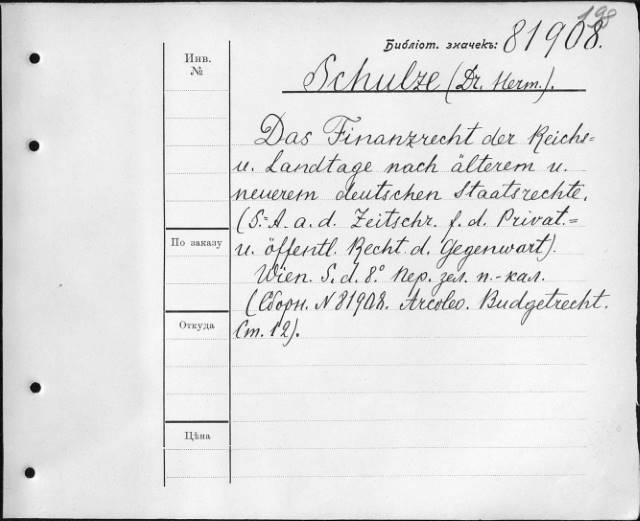 198
Библіот. значекъ: 81908.
Инв.
№
Schulze (Dr. Herm.).
Das Finanzrecht der Reichs=
u. Landtage nach älterem u.
neuerem deutschen Staatsrechte.
(S.=A. a. d. Zeitschr. f. d. Privat.=
По заказу
u. öffentl. Recht d. Gegenwart).
Wien. S. d. 8.° Пер. зел. п.-кал.
(Сборн. N 81908. Arcoleo. Budgetrecht.
Откуда
Ст. 12).
Цѣна